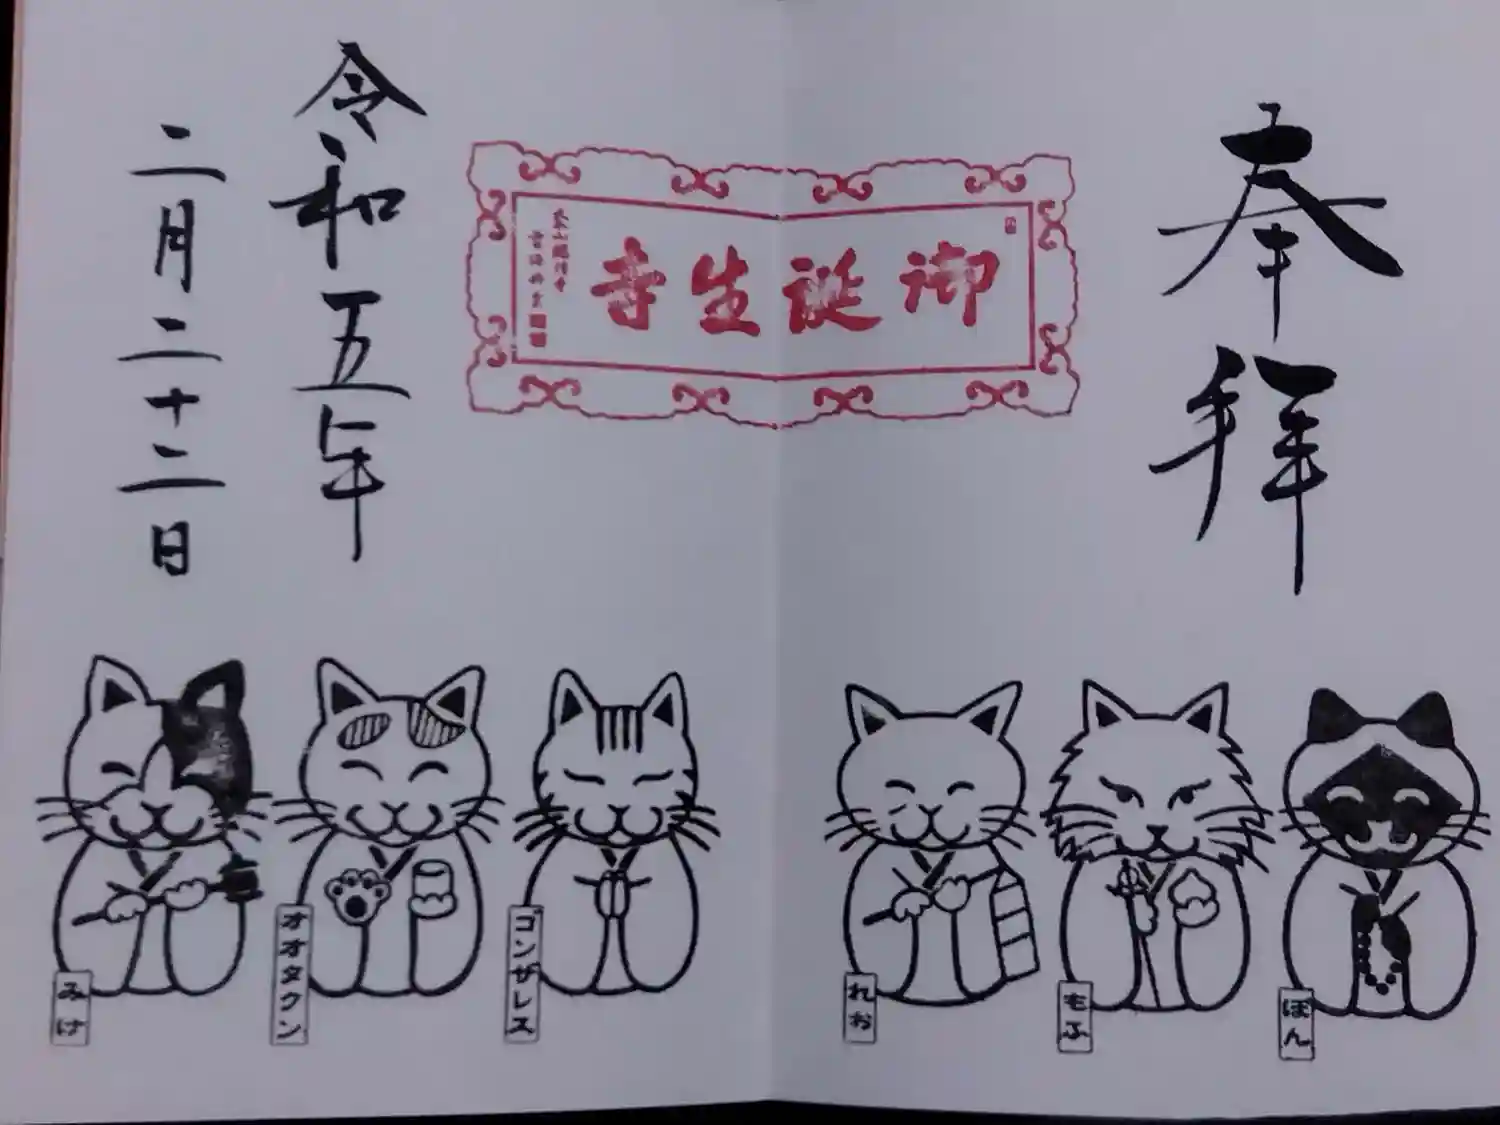 奉拝
御誕生寺
令和五年
二月二十二日
ぽん
もふ
れお
ゴンザレス
オオタクン
みけ